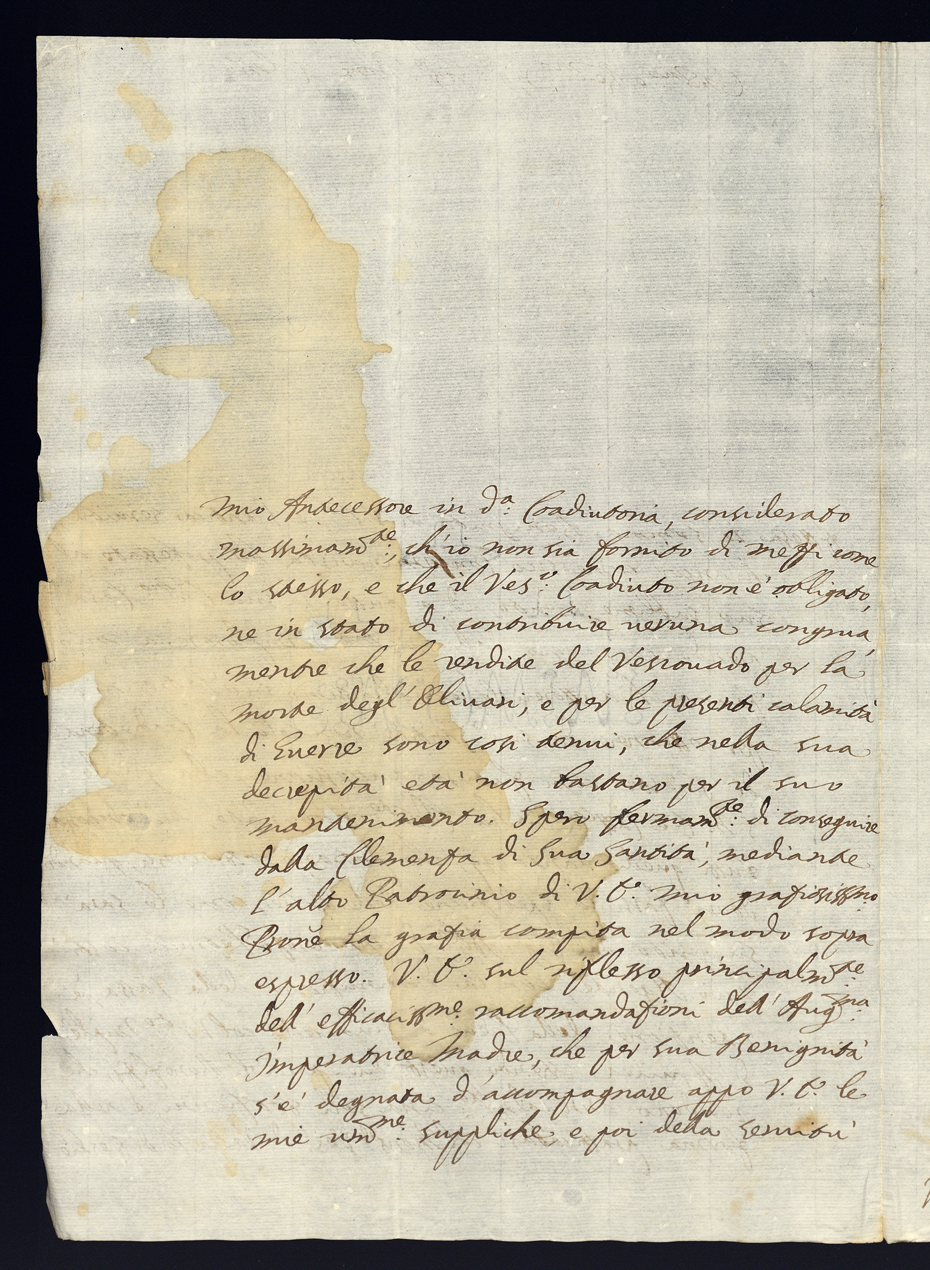 mio Antecessore in d.ª Coadiutoria, considerato
massimam.te, ch'io non sia fornito di mezzi come
lo stesso, e che il Ves.º Coadiuto non è obligato,
ne in stato di contribuire veruna congrua,
mentre che le rendite del Vescovado per la
morte degl'Olivari, e per le presenti calamità
di Guerre sono così tenui, che nella sua
decrepità età non bastano per il suo
mantenimento. Spero fermam.te di conseguire
dalla Clemenza di Sua Santità, mediante
l'alto Patrocinio di V. E. mio graziosissmo
Prone la grazia compita nel modo sopra
espresso. V. E. sul riflesso principalm.te
dell'efficacissme raccomandazioni dell'Aug.ma
Imperatrice Madre, che per sua Benignità
s'è degnata d'accompagnare appo V. E. le
mie um.me suppliche, e poi della servitù